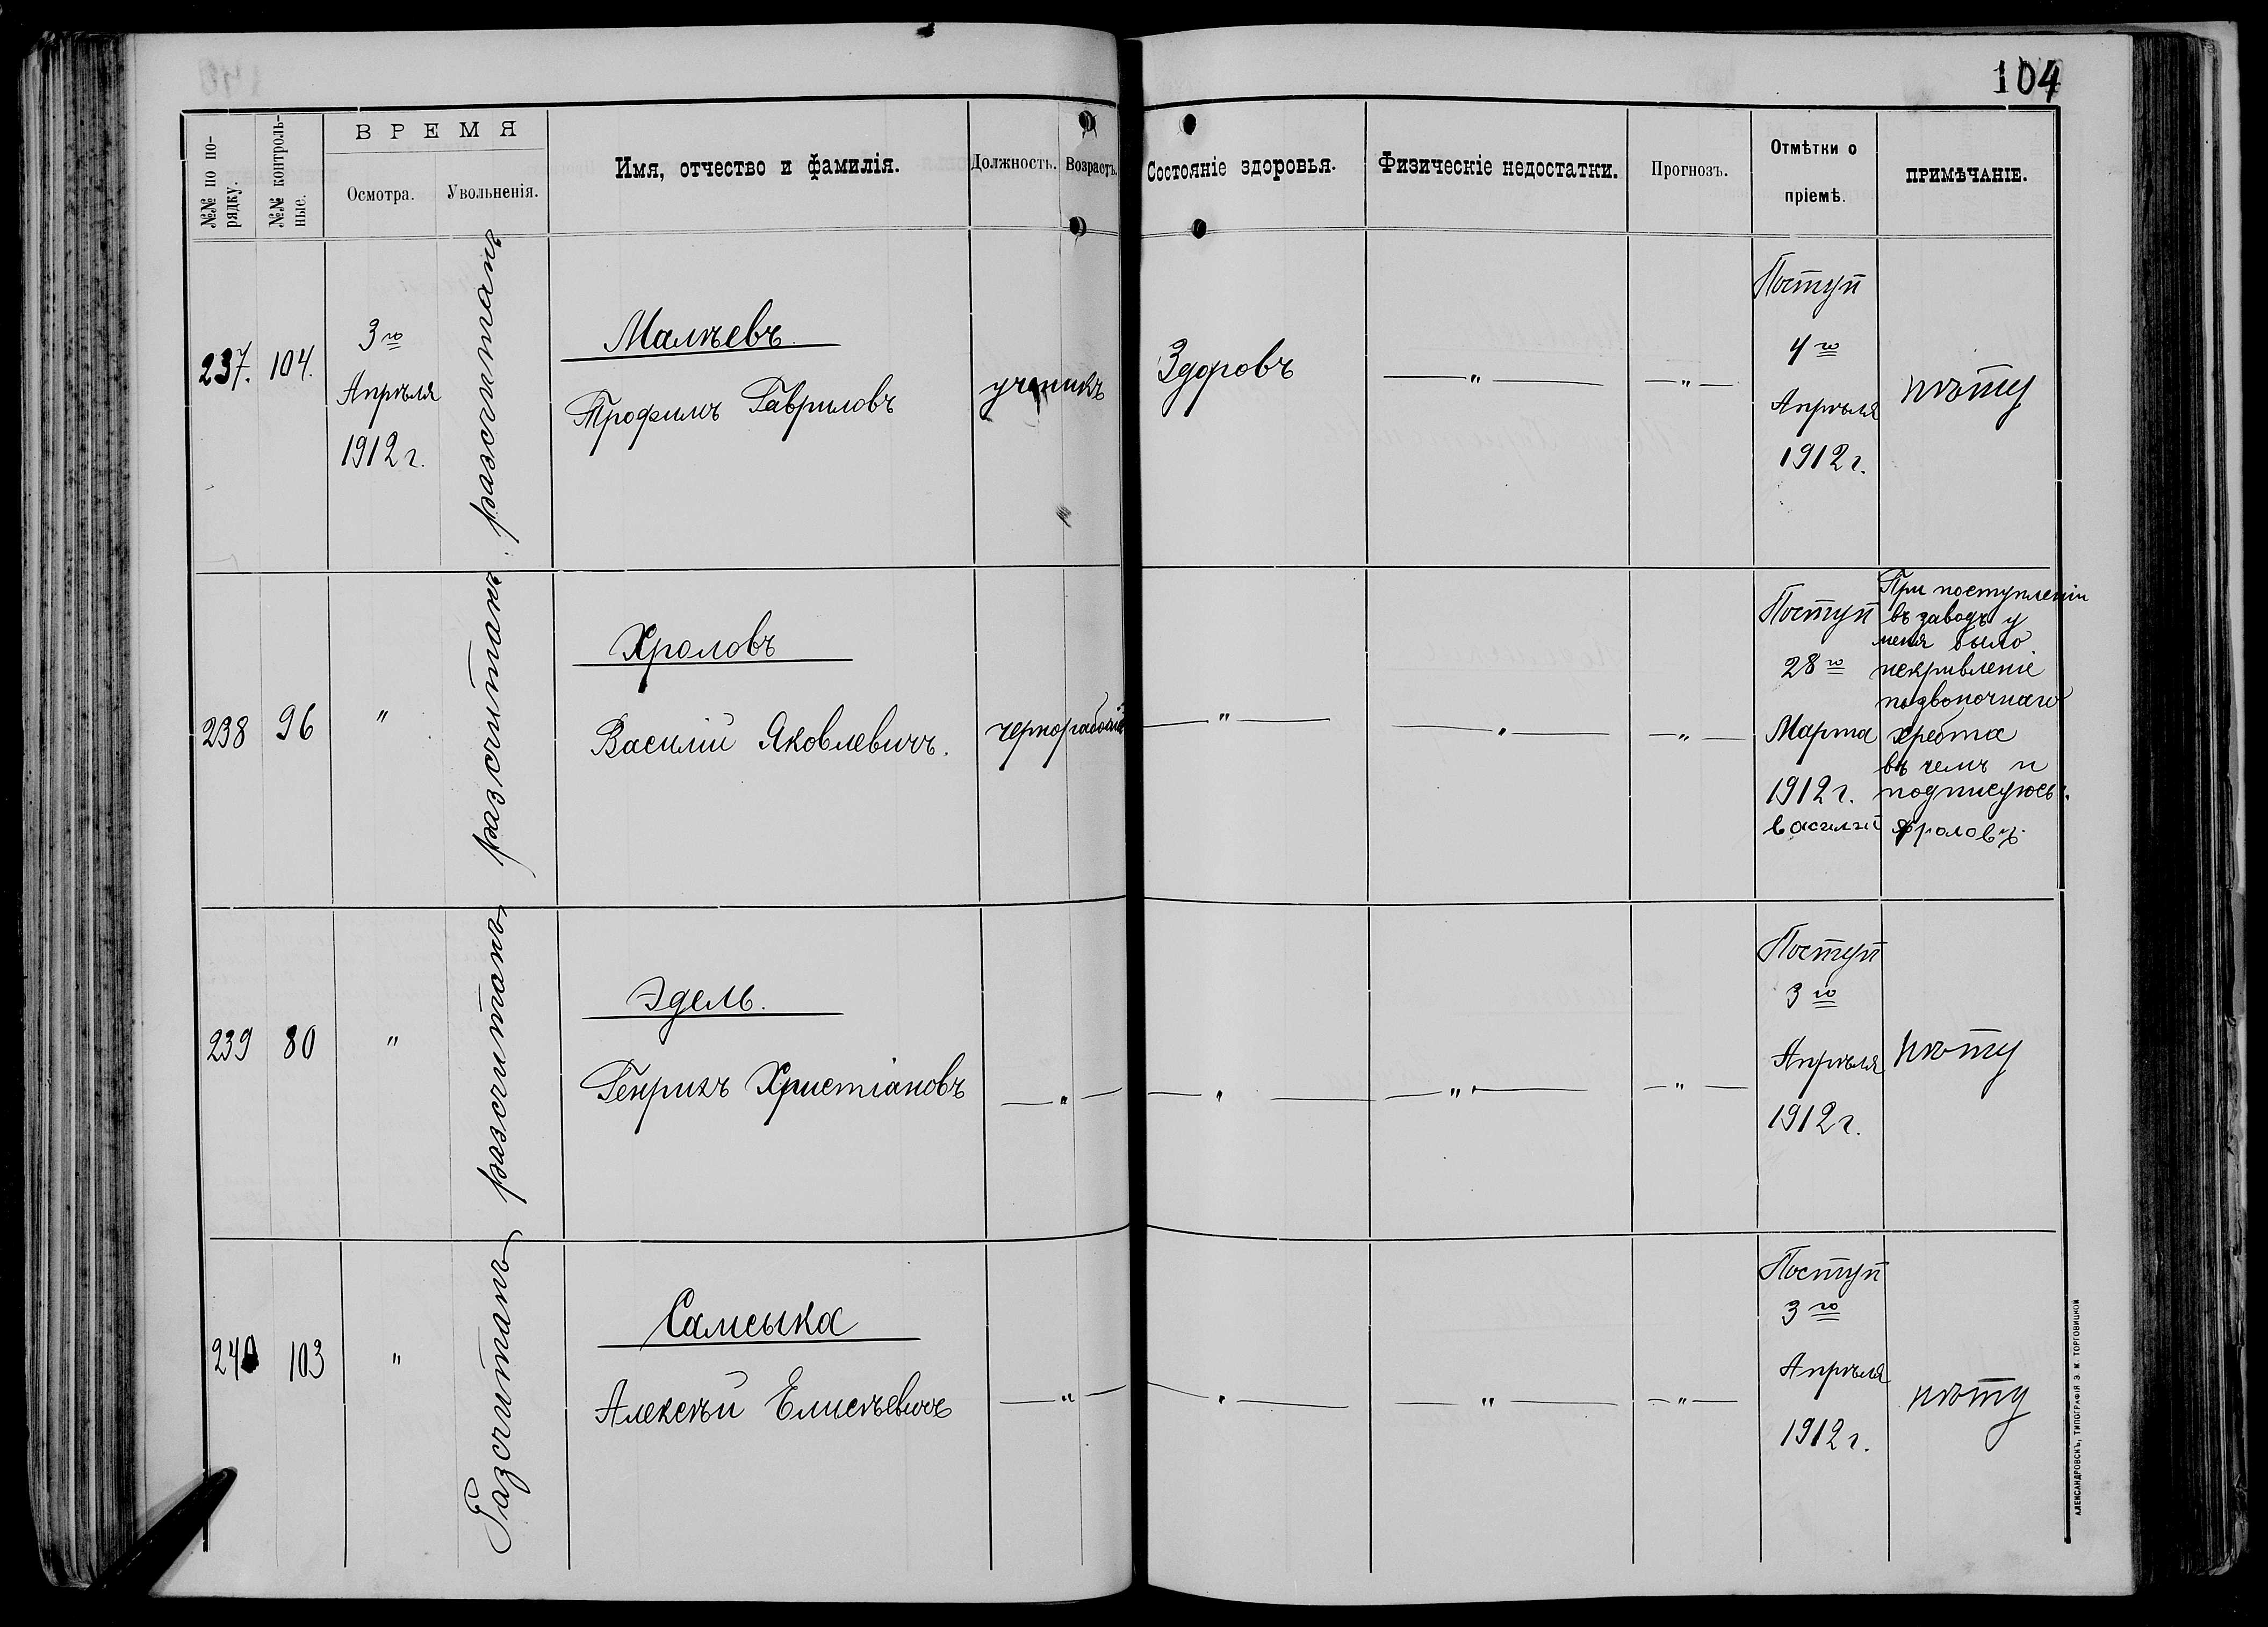 104
№№ по по-
рядку.
№№ контроль-
ные.
ВРЕМЯ
Осмотра.
Увольненія.
Имя, отчество и фамилія.
Должность.
Возрастъ.
Состояніе здоровья.
Физическіе недостатки.
Прогнозъ.
Отмѣтки о
пріемѣ.
ПРИМѢЧАНІЕ.
237. 104.
3го
Апрѣля
1912 г.
разсчитанъ
Малѣевъ
Трофимъ Гавриловъ
ученикъ
Здоровъ
— " —
— " —
Поступ
4го
Апрѣля
1912 г.
нѣту
238 96
"
разсчитанъ
Хроловъ
Василій Яковлевичъ.
чернорабочій
— " —
— " —
— " —
Поступ
28го
Марта
1912 г.
При поступленіи
въ заводъ у
меня было
искривленіе
позвоночнаго
хребта
въ чемъ и
подписуюсь.
василий Фроловъ.
239 80
"
разсчитанъ
Эдель.
Генрихъ Христіановъ
— " —
— " —
— " —
— " —
Поступ
3го
Апрѣля
1912 г.
нѣту
240 103
"
Разсчитанъ
Самсыка
Алексѣй Елисѣевичъ
— " —
— " —
— " —
— " —
Поступ
3го
Апрѣля
1912 г.
нѣту
АЛЕКСАНДРОВСКЪ, ТИПОГРАФІЯ Э. М. ТОРГОВИЦКОЙ